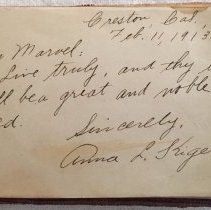 Creston Cal,
Feb. 11, 1913
Marvel:
Live truly, and thy
be a great and noble
Sincerely,
Anna L.